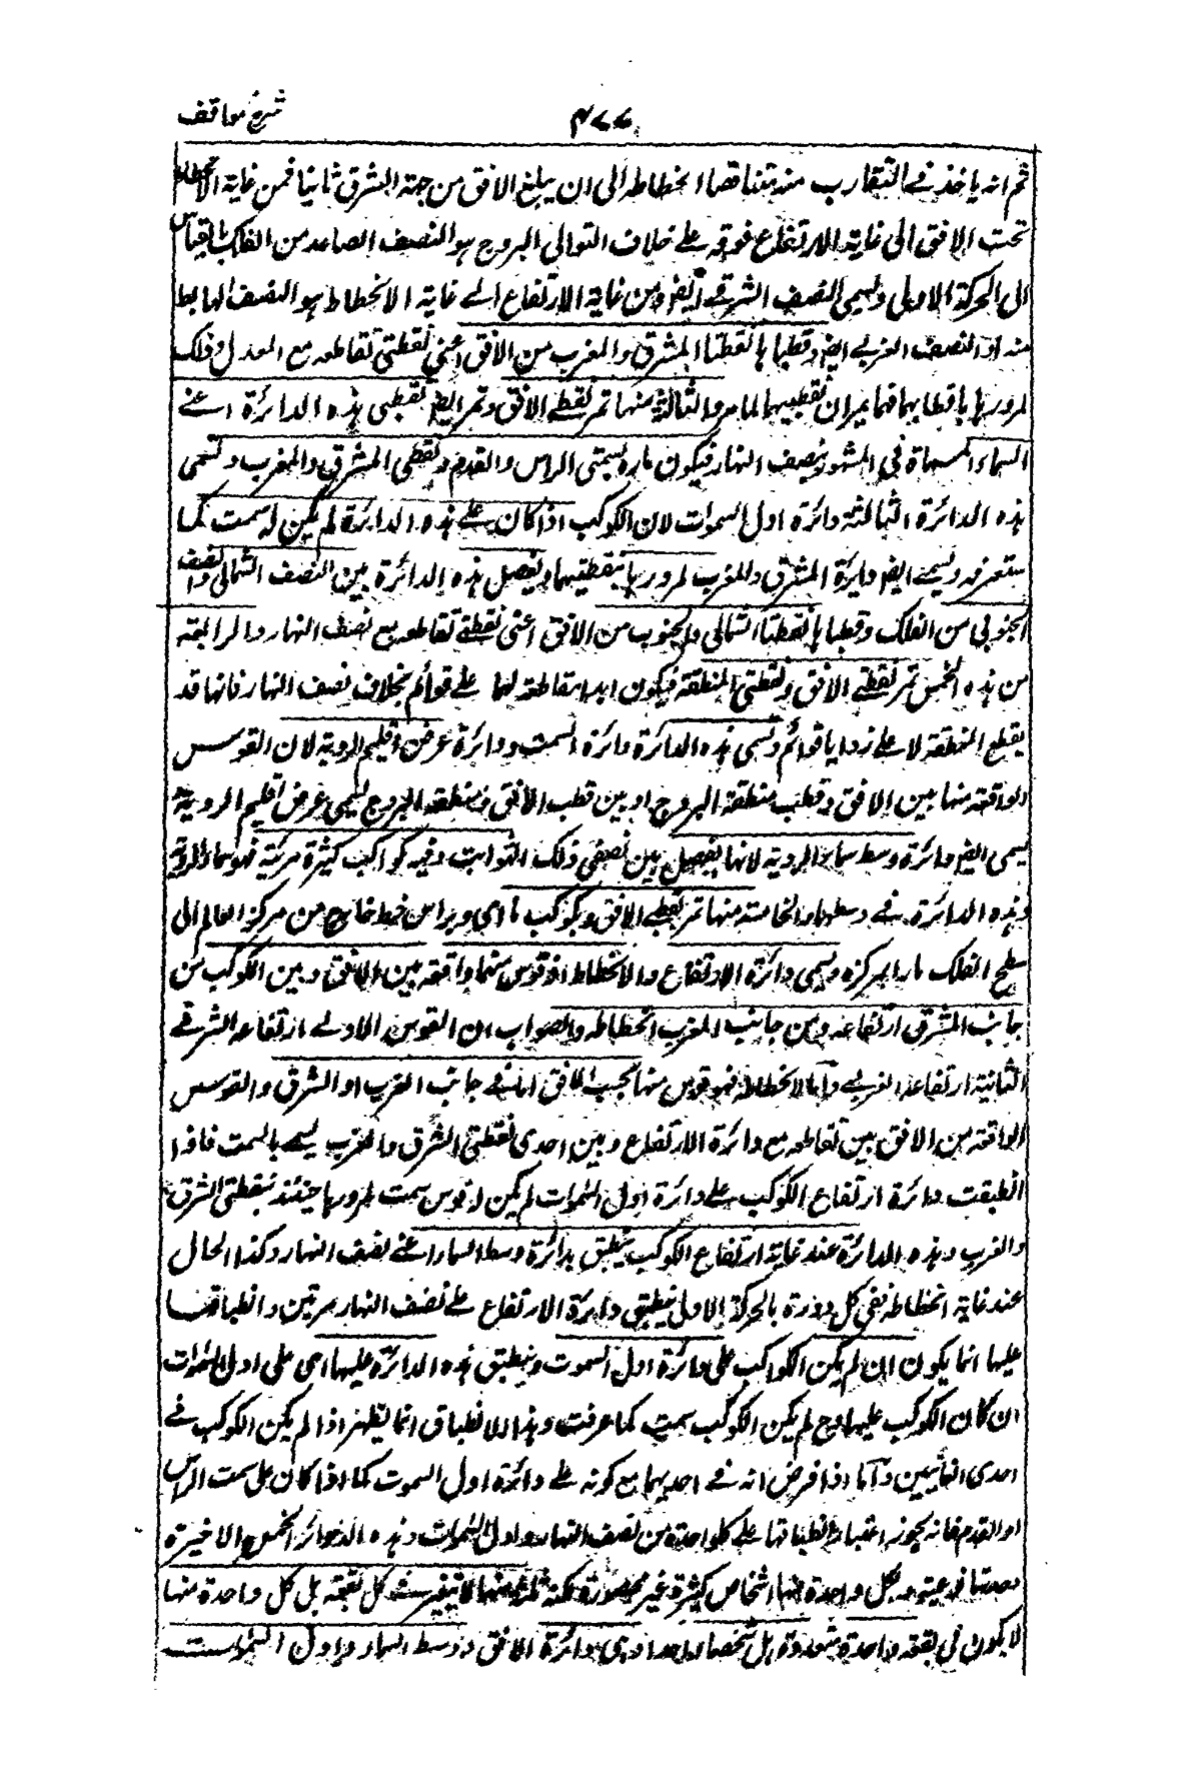 شرح مواقف
٤٧٧
ثم انه ياخذ في التقارب منه متناقصا انحطاطه الى ان يبلغ الافق من جهة الشرق ثانيا فمن غاية الانحطاط
تحت الافق الى غاية الارتفاع فوقه على خلاف التوالى البروج هو النصف الصاعد من الفلك بالقياس
الى الحركة الاولى ويسمى النصف الشرقي ايضا ومن غاية الارتفاع الى غاية الانحطاط هو النصف الهابط
منه او النصف الغربي ايضا وقطباها نقطتا المشرق والمغرب من الافق اعني نقطتي تقاطعه مع المعدل وذلك
لمرورها باقطابهما فهما يمران بقطبيها لما مر والثالثة منها تمر بقطبي الافق وتمر ايضا بقطبي هذه الدائرة اعني
السماء المسماة في المشهور بنصف النهار فيكون مارة بسمتى الراس والقدم ونقطى المشرق والمغرب وتسمى
هذه الدائرة الثالثة دائرة اول السموات لان الكوكب اذا كان على هذه الدائرة لم يكن له سمت كما
ستعرفه ويسمى ايضا دائرة المشرق والمغرب لمرورها بنقطتيهما ويفصل هذه الدائرة بين النصف الشمالى والنصف
الجنوبى من الفلك وقطباها نقطتا الشمالى والجنوب من الافق اعنى نقطتي تقاطعه مع نصف النهار والرابعة
من هذه الخمس تمر بقطبي الافق وبقطبي المنطقة فيكون ابدا مقاطعة لهما على قوائم بخلاف نصف النهار فانها قد
يقطع المنطقة لا على زوايا قوائم وتسمى هذه الدائرة دائرة السمت ودائرة عرض اقليم الروية لان القوس
الواقعة منها بين الافق وقطب منطقة البروج او بين قطب الافق ومنطقة البروج يسمى عرض اقليم الروية
يسمى ايضا دائرة وسط سماء الروية لانها يفصل بين نصفى فلك الثوابت وفيه كواكب كثيرة مرئية فهو سماء الروية
وهذه الدائرة في وسطها والخامسة منها تمر بقطبي الافق وبكوكب ما اى وبراس خط خارج من مركز العالم الى
سطح الفلك مارا بمركزه ويسمى دائرة الارتفاع والانحطاط اذ قوس منها واقعة بين الافق وبين الكوكب من
جانب المشرق ارتفاعه ومن جانب المغرب انحطاطه والصواب ان القوس الاولى ارتفاعه الشرقي
الثانية ارتفاعه الغربي واما الانحطاط فهو قوس منها تحت الافق اما في جانب الغرب او الشرق والقوس
الواقعة من الافق بين تقاطعه مع دائرة الارتفاع وبين احدى نقطتي الشرق والمغرب يسمى بالسمت فاذا
انطبقت دائرة ارتفاع الكوكب على دائرة اول السموات لم يكن له قوس سمت لمرورها حينئذ بنقطتي الشرق
والغرب وهذه الدائرة عند غاية ارتفاع الكوكب ينطبق بدائرة وسط السماء اعني نصف النهار وكذا الحال
عند غاية انحطاطه ففي كل دورة بالحركة الاولى ينطبق دائرة الارتفاع على نصف النهار مرتين وانطباقها
عليها انما يكون ان لم يكن الكواكب على دائرة اول السموت وينطبق هذه الدائرة عليها اى على اول السموات
ان كان الكوكب عليها وح لم يكن الكوكب سمت كما عرفت وهذا الانطباق انما يظهر اذا لم يكن الكوكب في
احدى الغايتين واما اذا فرض انه في احديهما مع كونه على دائرة اول السموت كما اذا كان على سمت الراس
او القدم فانه يجوز اعتبار انطباقها على كل واحدة من نصف النهار واول السموات وهذه الدوائر الخمس الاخيرة
وحدتها نوعية ولكل واحدة منها اشخاص كثيرة غير محصورة لكنه ثلثة منها لا يتغير في كل بقعة بل كل واحدة منها
لا يكون فى بقعة واحدة متعددة بل شخصا واحدا وهى دائرة الافق ووسط السماء واول السموات